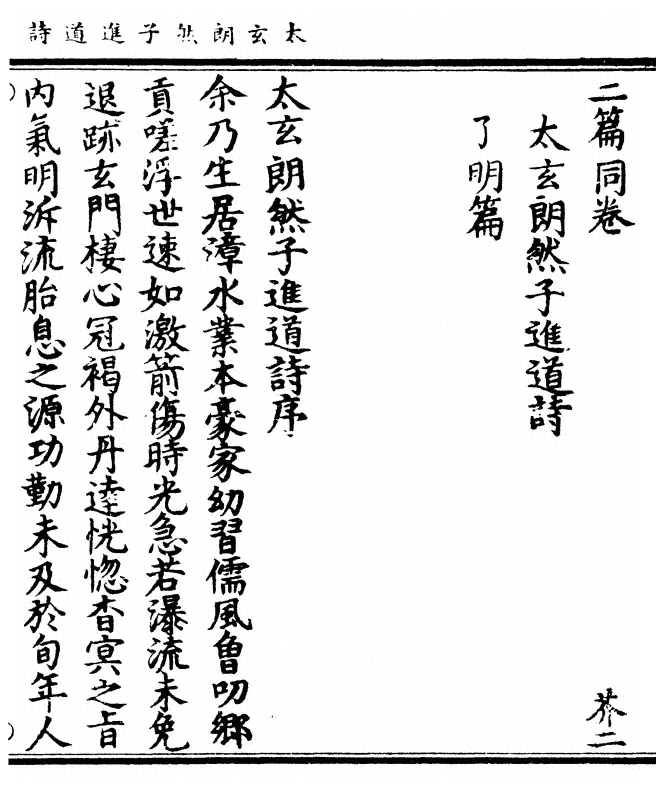 太玄朗然子進道詩
二篇同卷 芥二
太玄朗然子進道詩
了明篇
太玄朗然子進道詩序
余乃生居漳水業本豪家幼習儒風曾叨鄉
貢嗟浮世速如激箭傷時光急若瀑流未免
退跡玄門棲心冠褐外丹達恍惚杳冥之旨
内氣明泝流胎息之源功勤未及於旬年人